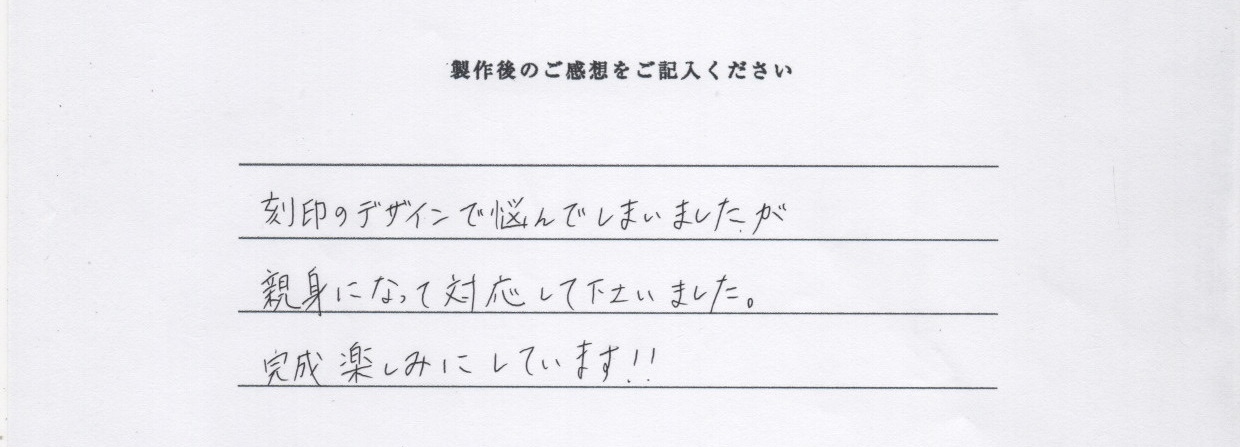 製作後のご感想をご記入ください
刻印のデザインで悩んでしまいましたが
親身になって対応して下さいました。
完成楽しみにしています!!